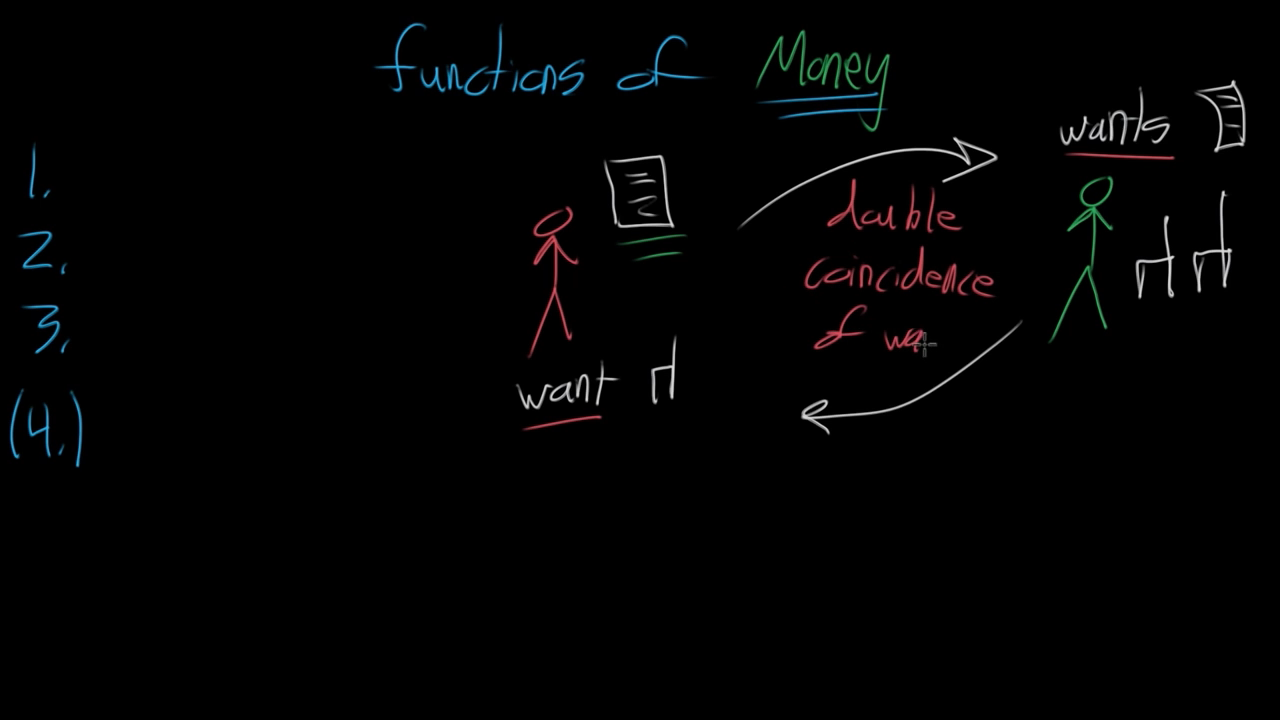 functions of Money
wants
1.
double
2.
coincidence
3.
of wa
want
(4.)